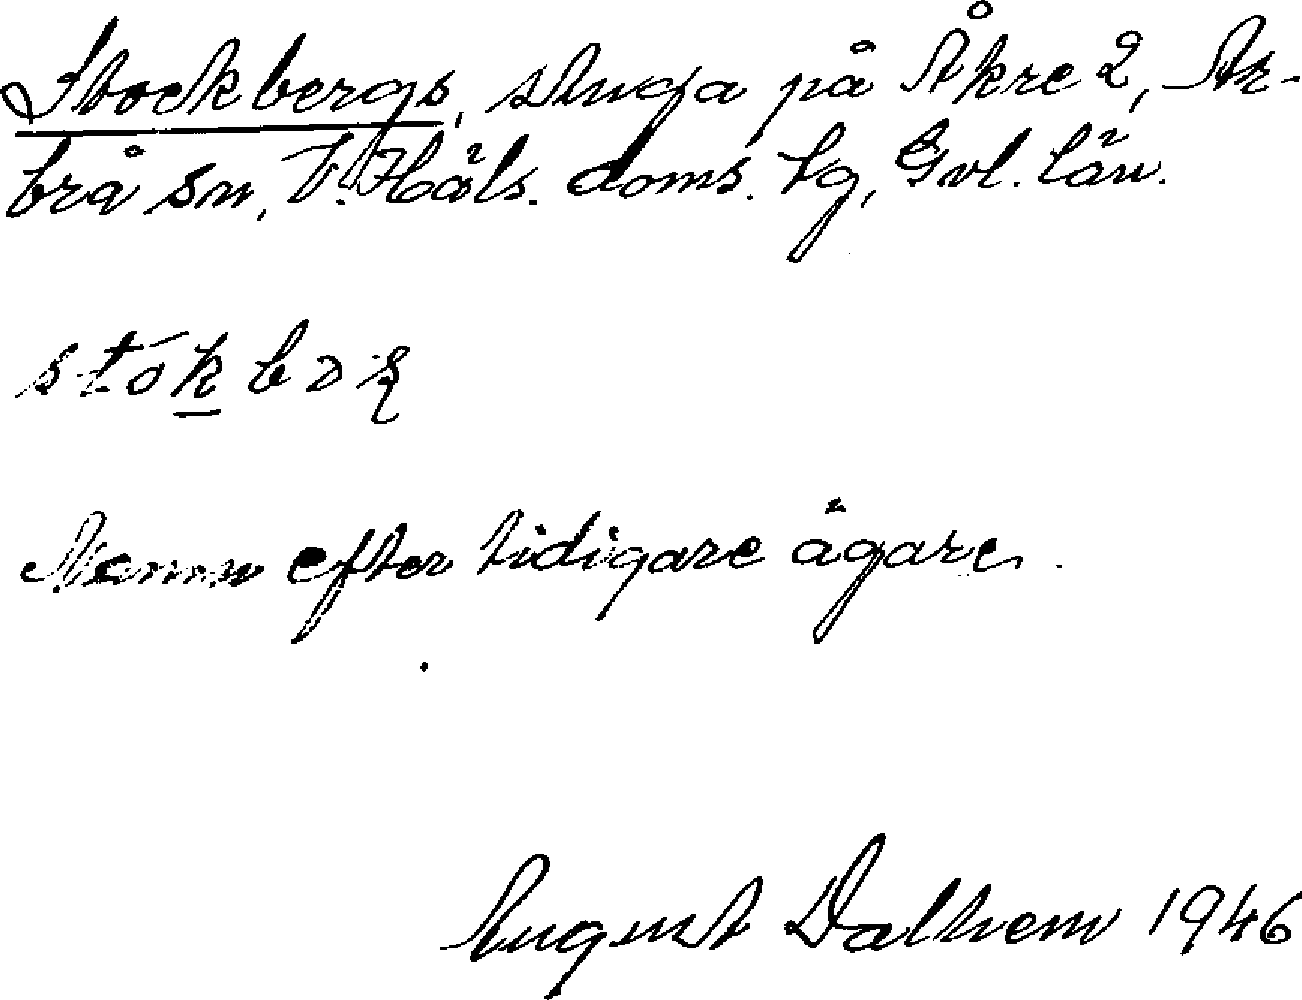 Stockbergs, stuga på Åkre 2, Ar-
brå sn, V. Häls. doms. tg, Gvl. län.
stókbɔꞩ
Namn efter tidigare ägare.
August Dalhem 1946